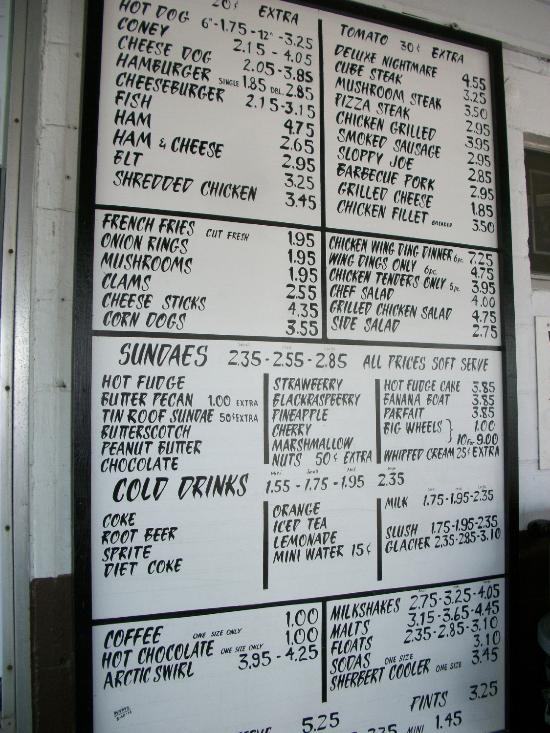 20¢ EXTRA
HOT DOG 6"-1.75-12"-3.25
CONEY 2.15-4.05
CHEESE DOG 2.05-3.85
HAMBURGER SINGLE 1.85 DBL. 2.85
CHEESEBURGER 2.15-3.15
FISH 4.75
HAM 2.65
HAM & CHEESE 2.95
BLT 3.25
SHREDDED CHICKEN 3.45
TOMATO 30¢ EXTRA
DELUXE NIGHTMARE 4.55
CUBE STEAK 3.25
MUSHROOM STEAK 3.50
PIZZA STEAK 2.95
CHICKEN GRILLED 3.95
SMOKED SAUSAGE 2.95
SLOPPY JOE 2.85
BARBECUE PORK 2.95
GRILLED CHEESE 1.85
CHICKEN FILLET BREADED 3.50
FRENCH FRIES CUT FRESH 1.95
ONION RINGS 1.95
MUSHROOMS 1.95
CLAMS 2.55
CHEESE STICKS 4.35
CORN DOGS 3.55
CHICKEN WING DING DINNER 6pc. 7.25
WING DINGS ONLY 6pc. 4.75
CHICKEN TENDERS ONLY 5pc. 3.95
CHEF SALAD 4.00
GRILLED CHICKEN SALAD 4.75
SIDE SALAD 2.75
SUNDAES 2.35-2.55-2.85 ALL PRICES SOFT SERVE
HOT FUDGE
BUTTER PECAN 1.00 EXTRA
TIN ROOF SUNDAE 50¢ EXTRA
BUTTERSCOTCH
PEANUT BUTTER
CHOCOLATE
STRAWBERRY
BLACKRASPBERRY
PINEAPPLE
CHERRY
MARSHMALLOW
NUTS 50¢ EXTRA
HOT FUDGE CAKE 3.85
BANANA BOAT 3.85
PARFAIT 3.85
BIG WHEELS } 1.00
10 For 9.00
WHIPPED CREAM 25¢ EXTRA
COLD DRINKS 1.55-1.75-1.95 2.35
COKE
ROOT BEER
SPRITE
DIET COKE
ORANGE
ICED TEA
LEMONADE
MINI WATER 15¢
MILK 1.75-1.95-2.35
SLUSH 1.75-1.95-2.35
GLACIER 2.35-2.85-3.10
COFFEE ONE SIZE ONLY 1.00
HOT CHOCOLATE ONE SIZE ONLY 1.00
ARCTIC SWIRL 3.95-4.25
MILKSHAKES 2.75-3.25-4.05
MALTS 3.15-3.65-4.45
FLOATS 2.35-2.85-3.10
SODAS ONE SIZE 3.10
SHERBERT COOLER ONE SIZE 3.45
5.25
PINTS 3.25
MINI 1.45